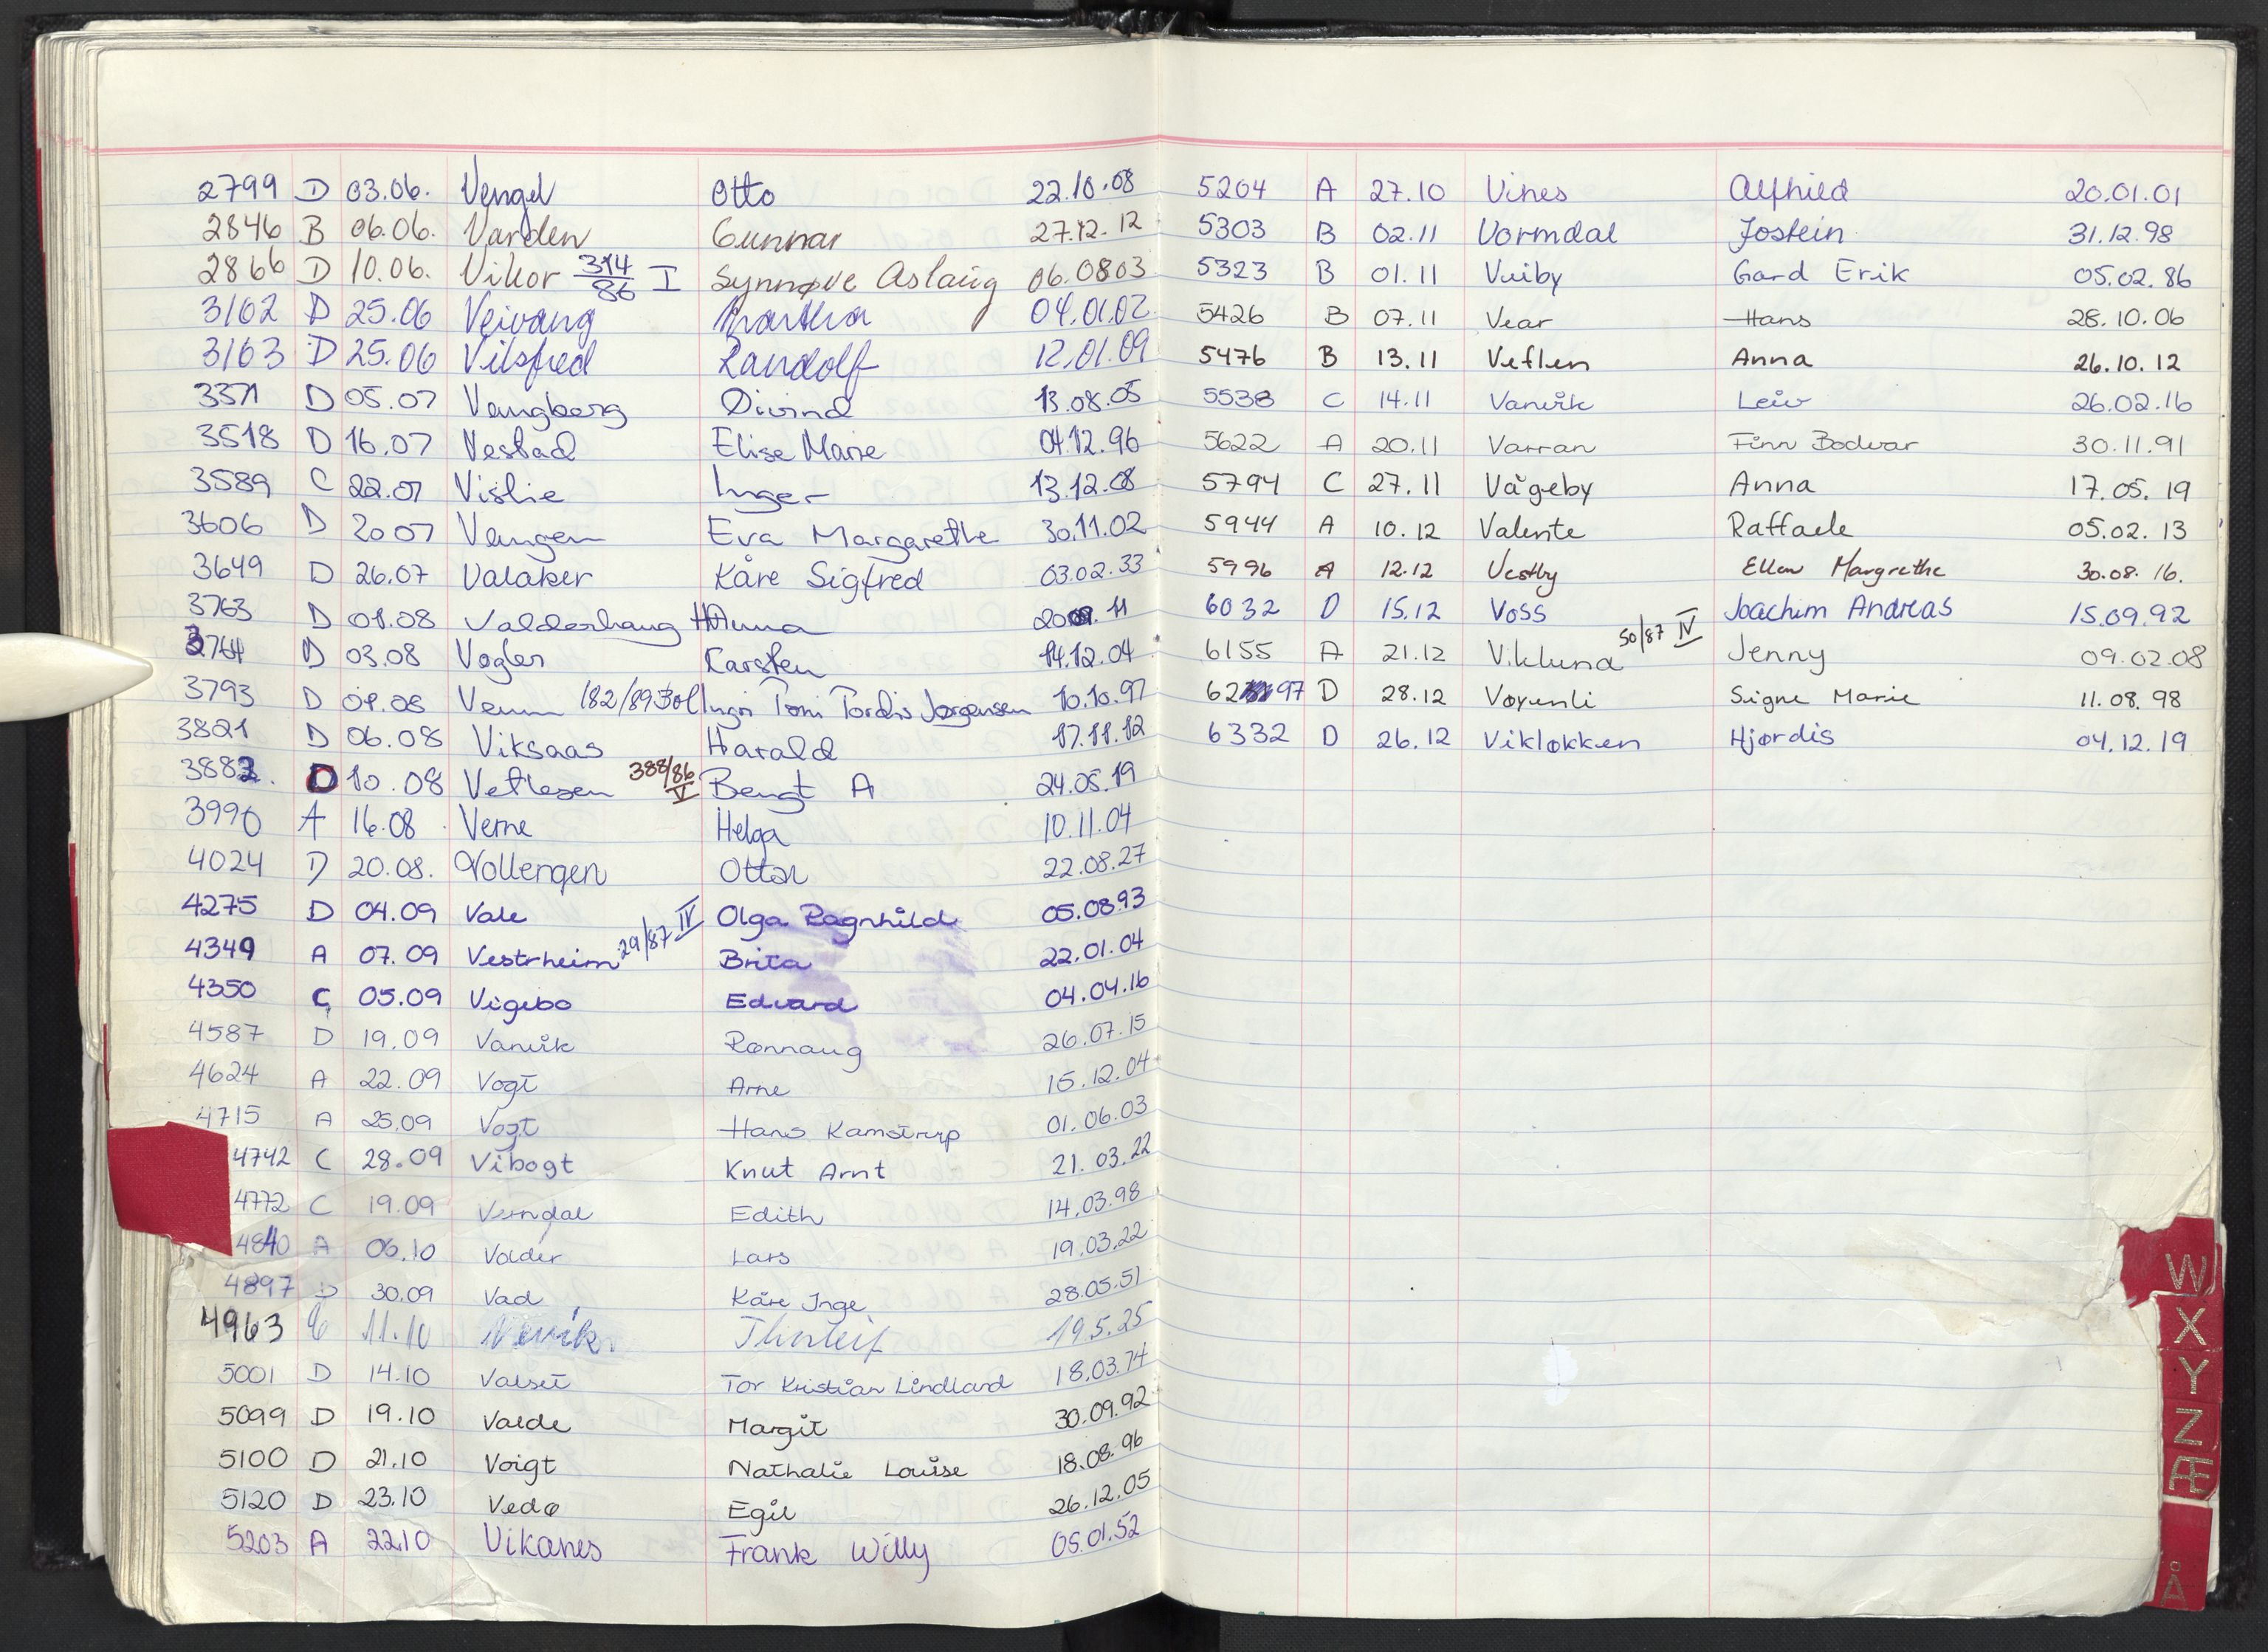 2799 D 03.06. Vengel Otto 22.10.08
2846 B 06.06. Varden Gunnar 27.12.12
2866 D 10.06. Vikor 314/86 I Synnøve Aslaug 06.0803
3102 D 25.06 Veivang Martha 04.01.02
3103 D 25.06 Vilsfred Randolf 12.01.09
3371 D 05.07 Vangberg Øivind 13.08.05
3518 D 16.07 Vestad Elise Marie 04.12.96
3589 C 22.07 Vislie Inger 13.12.08
3606 D 20 07 Vangen Eva Margarethe 30.11.02
3649 D 26.07 Valaker Kåre Sigfred 03.02.33
3763 D 01.08 Valderhaug Anna 11
3764 D 03.08 Vogler Karsten 14.12.04
3793 D 01.08 Venn 182/89 Ingri Toni Tordis Jørgensen 10.10.97
3821 D 06.08 Viksaas Harald 17.11.12
3882. D 10.08 Vetlesen 388/86 V Bengt A 24.05.19
3990 A 16.08 Verne Helga 10.11.04
4024 D 20.08. Vollengen Ottar 22.08.27
4275 D 04.09 Vale Olga Ragnhild 05.0893
4349 A 07.09 Vestrheim 29/87 IV Brita 22.01.04
4350 C 05.09 Vigebo Edvard 04.04.16
4587 D 19.09 Vanvik Rønnaug 26.07.15
4624 A 22.09 Vogt Arne 15.12.04
4715 A 25.09 Vogt Hans Kamstrup 01.06.03
4742 C 28.09 Vibogt Knut Arnt 21.03.22
4772 C 19.09 Venndal Edith 14.03.98
4840 A 06.10 Valder Lars 19.03.22
4897 D 30.09 Vad Kåre Inge 28.05.51
4963 C 11.10 Thorleif 19.5.25
5001 D 14.10 Valset Tor Kristian Lindland 18.03.74
5099 D 19.10 Valde Margit 30.09.92
5100 D 21.10 Voigt Nathalie Louise 18.08.96
5120 D 23.10 Vedø Egil 26.12.05
5203 A 2210 Vikanes Frank Willy 05.01.52
5204 A 27.10 Vines Alfhild 20.01.01
5303 B 02.11 Vormdal Jostein 31.12.98
5323 B 01.11 Vuiby Gard Erik 05.02.86
5426 B 07.11 Vear Hans 28.10.06
5476 B 13.11 Veflen Anna 26.10.12
5538 C 14.11 Vanvik Leiv 26.02.16
5622 A 20.11 Varran Finn Bodvar 30.11.91
5794 C 27.11 Vågeby Anna 17.05.19
5944 A 10.12 Valente Raffaele 05.02.13
5996 A 12.12 Vestby Ellen Margrethe 30.08.16.
6032 D 15.12 Voss Joachim Andreas 15.09.92
6155 A 21.12 Viklund 50/87 IV Jenny 09.02.08
6297 D 28.12 Vøyenli Signe Marie 11.08.98
6332 D 26.12 Vikløkken Hjørdis 04.12.19
W
X
Y
Z
Æ
Å